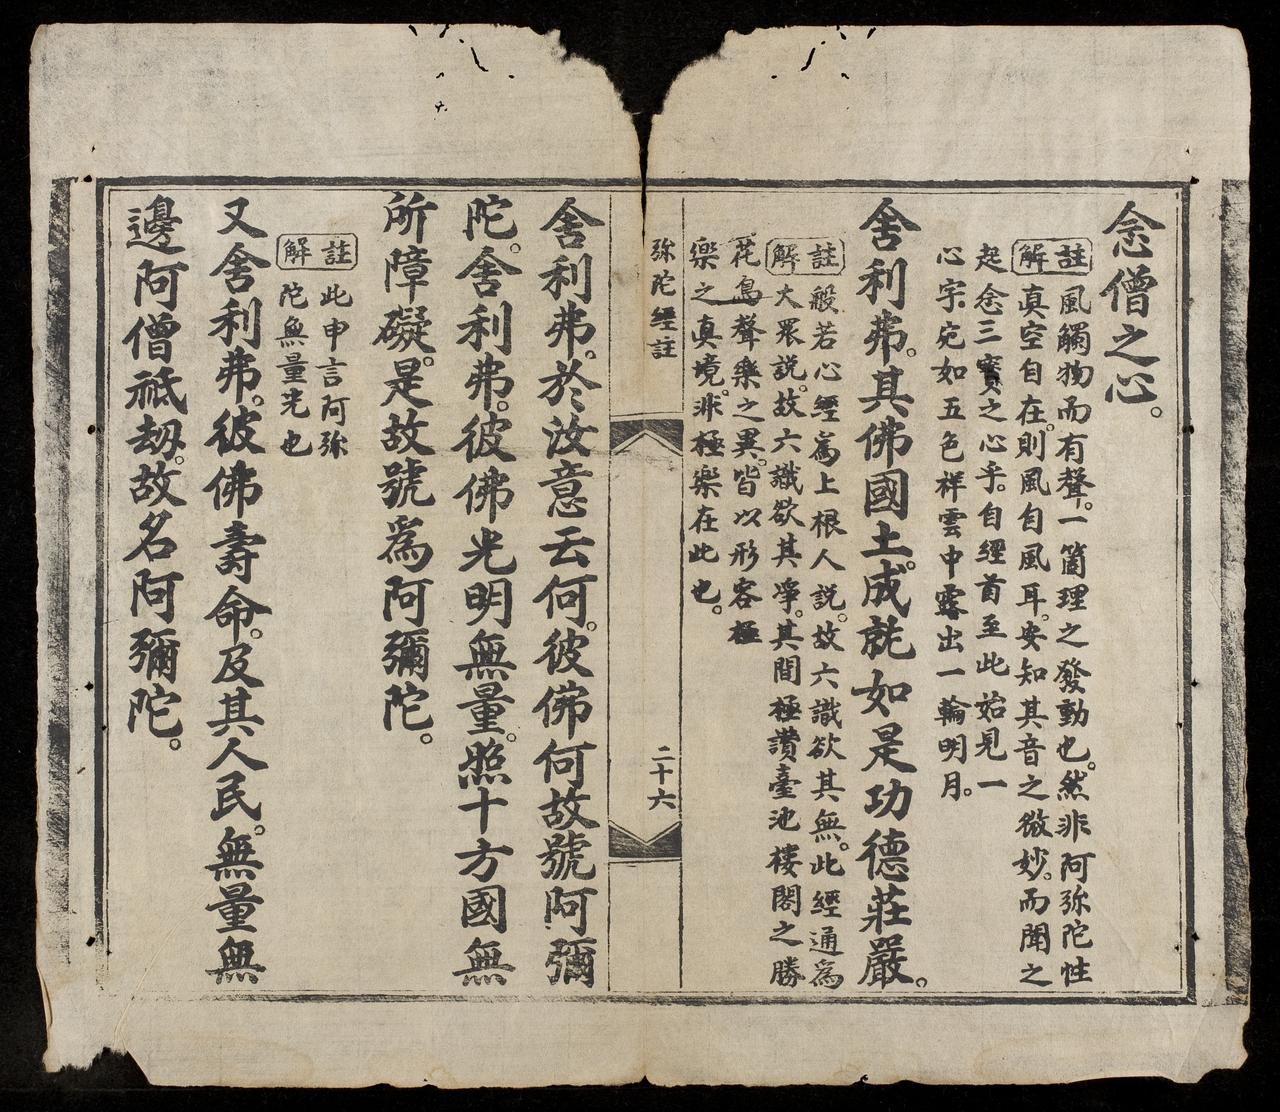 念僧之心。
註解
風觸物而有聲。一箇理之發動也。然非阿弥陀性
真空自在。則風自風耳。安知其音之微妙。而聞之
起念三寳之心乎。自經首至此始見一
心字。宛如五色祥雲中露出一輪明月。
舍利弗。其佛國土。成就如是功德莊嚴。
註解
般若心經為上根人說。故六識欲其無。此經通為
大眾說。故六識欲其淨。其間極讚臺池樓閣之勝
花鳥聲樂之異。皆以形容極
樂之真境。非極樂在此也。
弥陀經註
二十六
舍利弗。於汝意云何。彼佛何故號阿彌
陀。舍利弗。彼佛光明無量。照十方國無
所障礙。是故號為阿彌陀。
註解
此申言阿弥
陀無量光也
又舍利弗。彼佛壽命。及其人民。無量無
邊阿僧祗劫。故名阿彌陀。